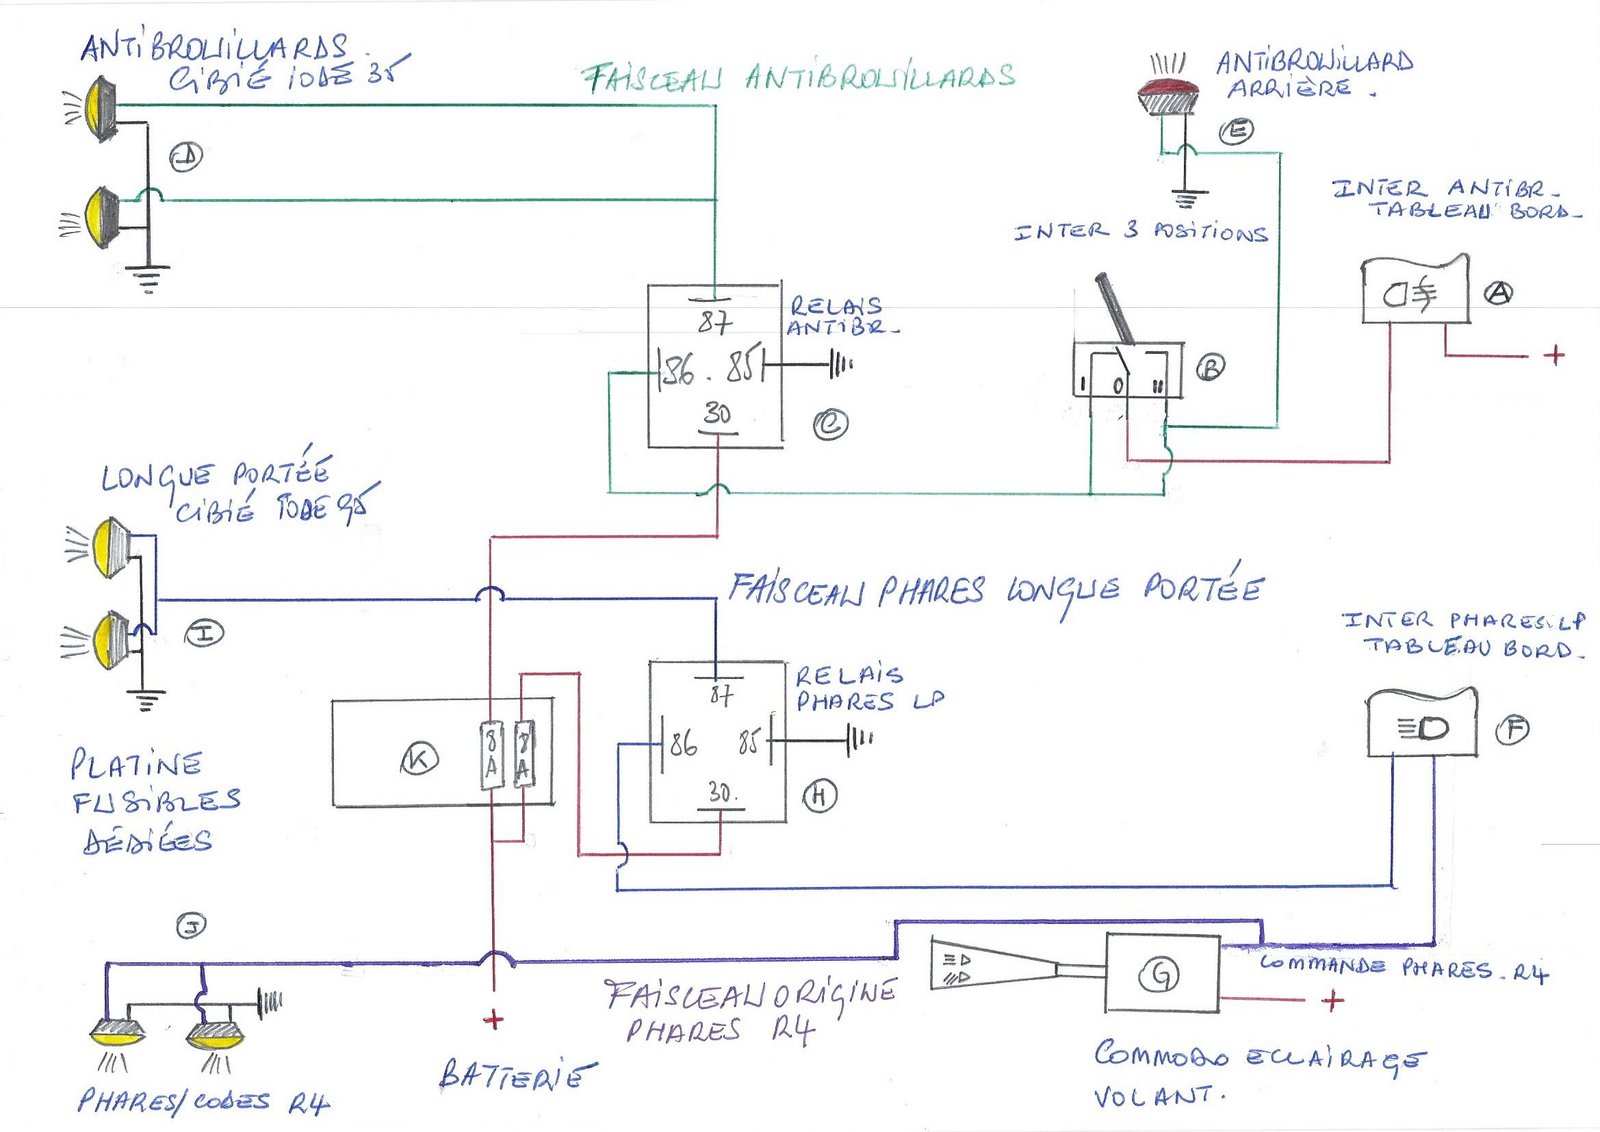 ANTIBROUILLARDS.
CIBIÉ IODE 35
FAISCEAU ANTIBROUILLARDS
ANTIBROUILLARD
ARRIÈRE.
D
E
INTER ANTIBR.
TABLEAU BORD.
INTER 3 POSITIONS
A
+
RELAIS
ANTIBR.
87
86. 85
30
C
B
I O II
LONGUE PORTÉE
CIBIÉ IODE 95
I
FAISCEAU PHARES LONGUE PORTÉE
INTER PHARES LP
TABLEAU BORD.
F
RELAIS
PHARES LP
87
86 85
30.
H
PLATINE
FUSIBLES
DÉDIÉES
K
8A
8A
J
COMMANDE PHARES R4
G
+
FAISCEAU ORIGINE
PHARES R4
+
BATTERIE
COMMODO ECLAIRAGE
VOLANT.
PHARES/CODES R4